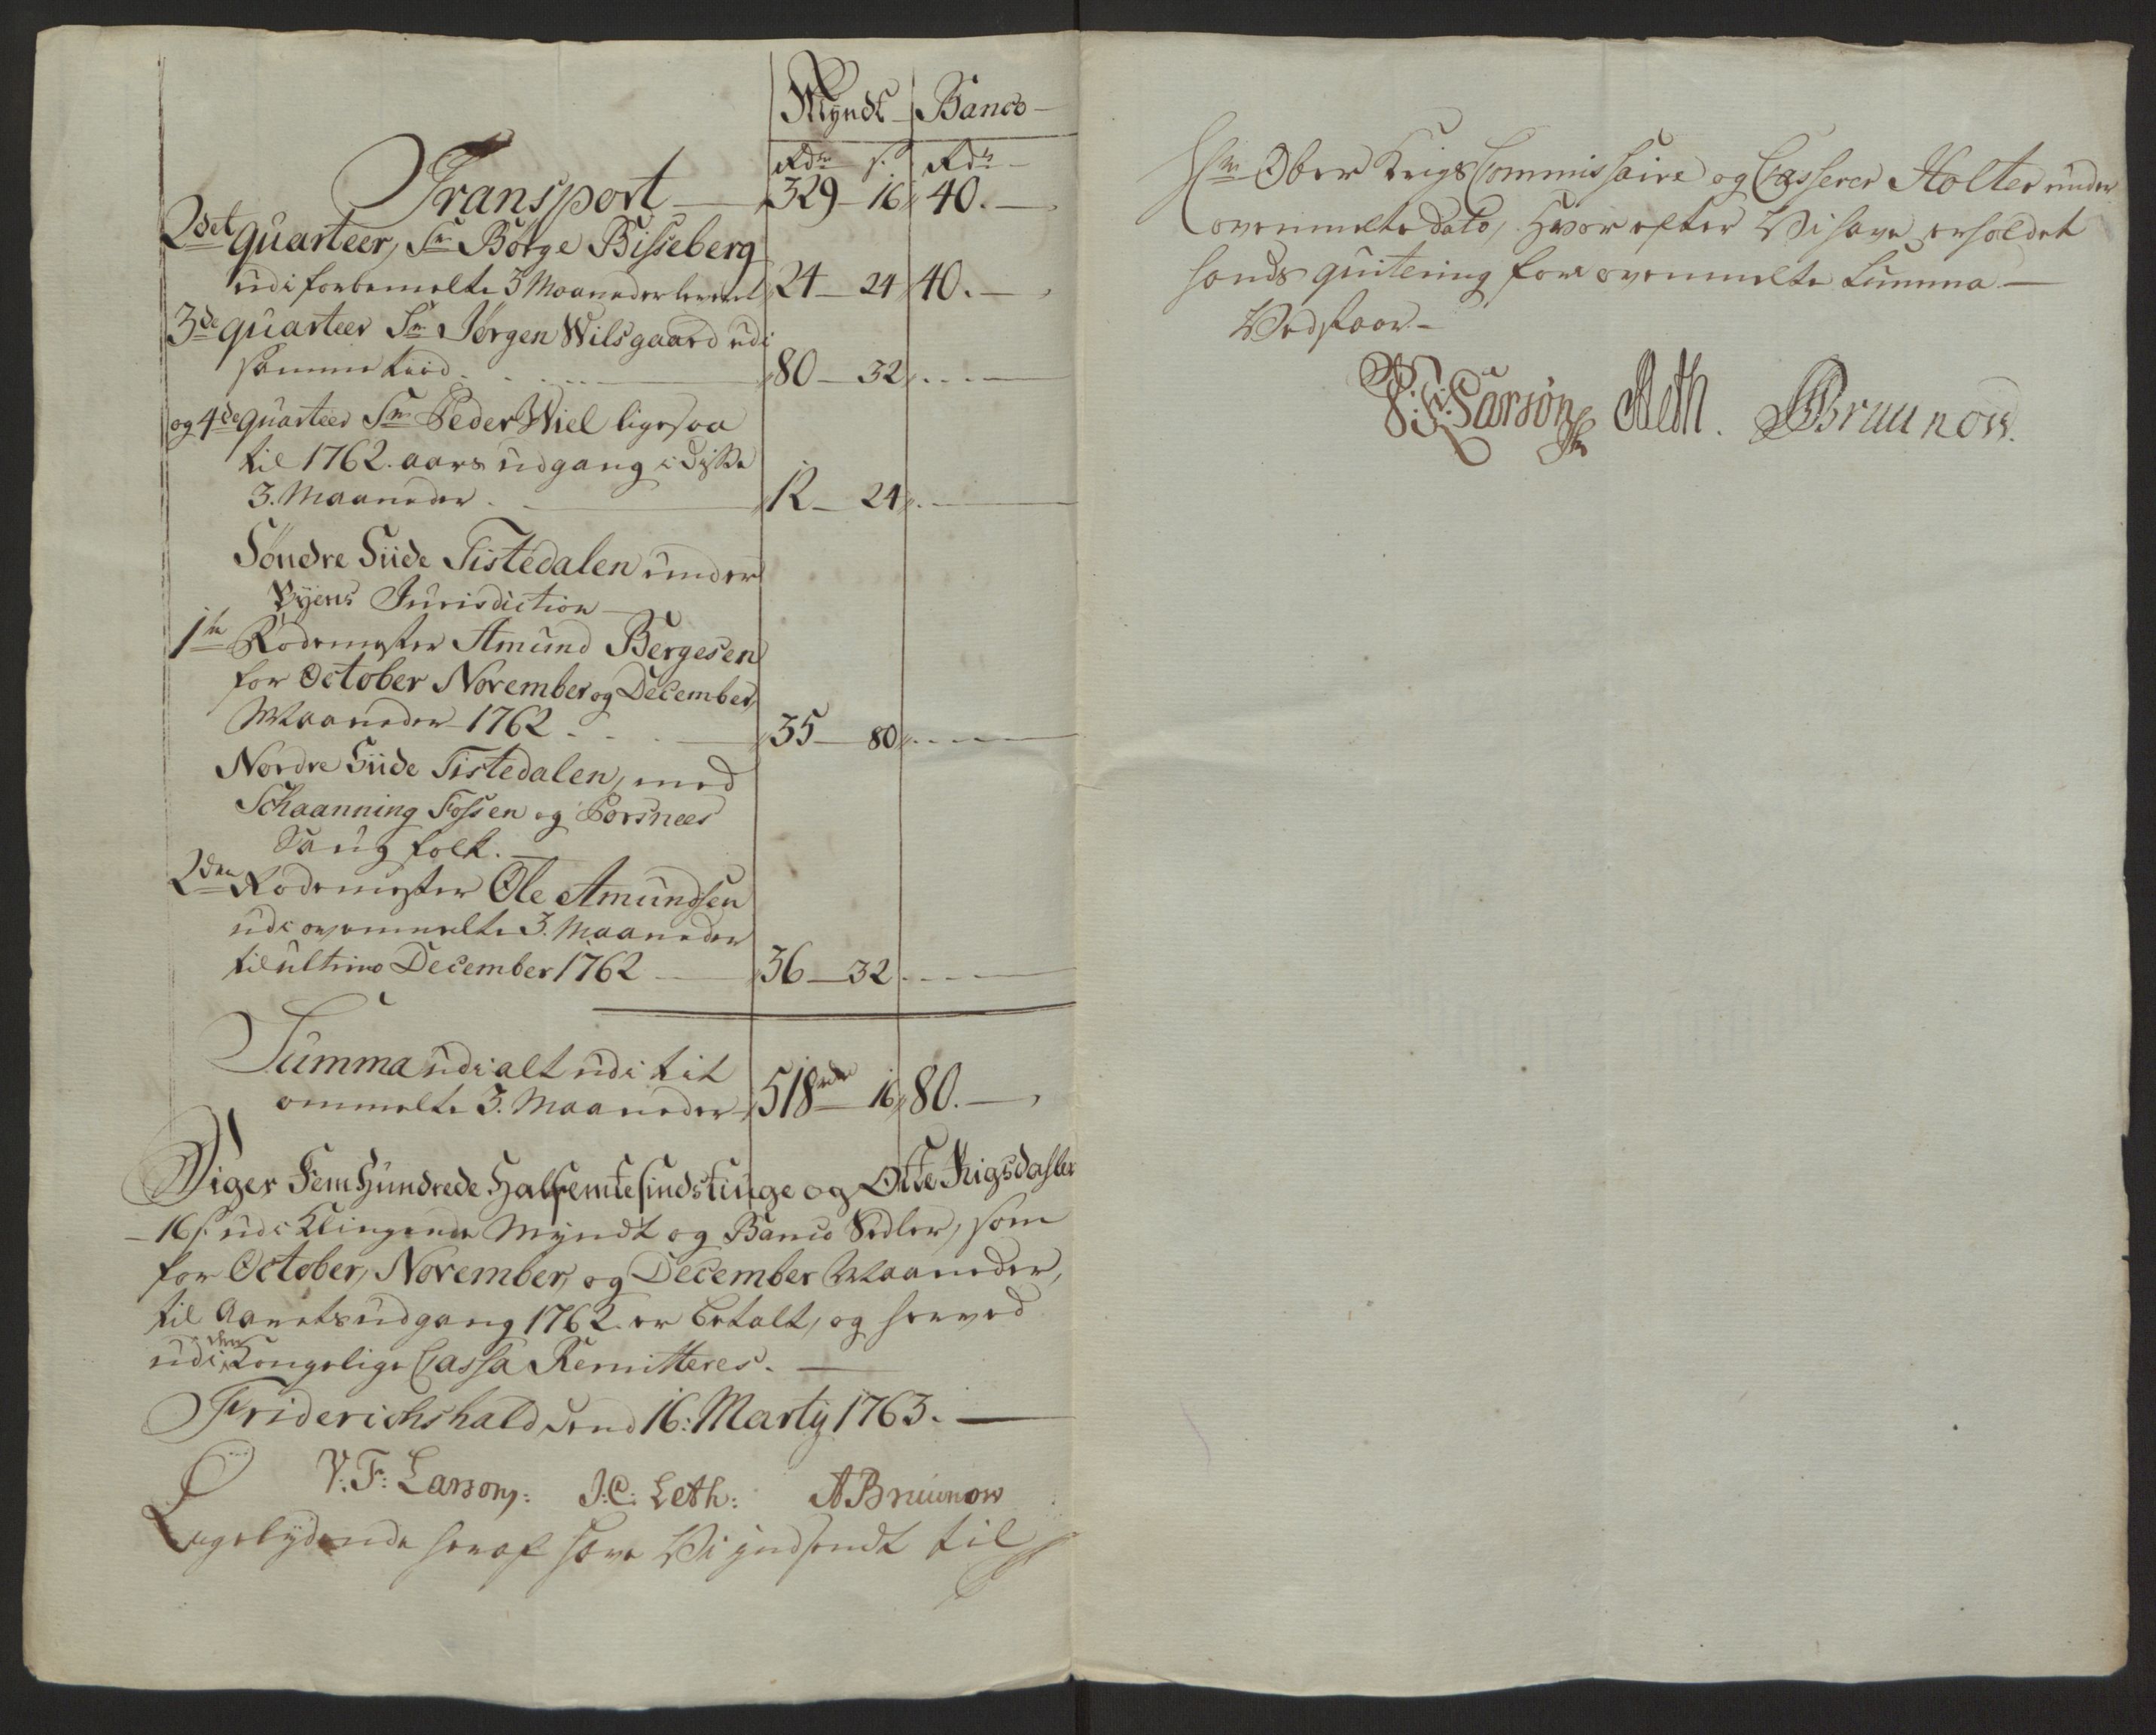 Myndt Banco
Rdr s. Rdr
Transport 329 16 40.
2det quarteer, Sr Börge Bisseberg
udi forbemelte 3 Maaneder leveret 24 24 40.
3de quarteer Sr Jörgen Wilsgaard udi
samme tiid 80 32
og 4de quarteer Sr Peder Wiel ligesaa
til 1762. aars udgang i disse
3. Maaneder 12 24
Söndre Siide Tistedalen under
Byens Jurisdiction
1te Rodemester Amund Bergesen
for October November og December
Maaneder 1762 35 80
Nordre Siide Tistedalen, med
Schaanning Fossen og Porsnees
Saug folk.
2den Rodemester Ole Amundsen
udi ovenmelte 3. Maaneder
til ultimo December 1762 36 32
Summa udi alt udi tit
ommelte 3. Maaneder 518 rdr 16 80.
Siger Fem Hundrede Halfemtesindstiuge og Otte Rigsdahler
16 s. udi Klingende Myndt og Banco Sedler, som
for October, November, og December Maaneder,
til Aarets udgang 1762. er betalt, og herved
udi den Kongelige Cassa Remitteres.
Friderichshald dend 16: Marty 1763.
V: F: Larson: J: C: Leth: A Bruunow
Ligelydende heraf have Vi indsendt til
Hr Ober Krigs Commissaire og Casserer Holter under
ovenmelte dato, hvor efter Vi have erholdet
hands quitering for ovenmelte Summa
Vedstaar
V: F: Larson JCLeth. ABruunow.